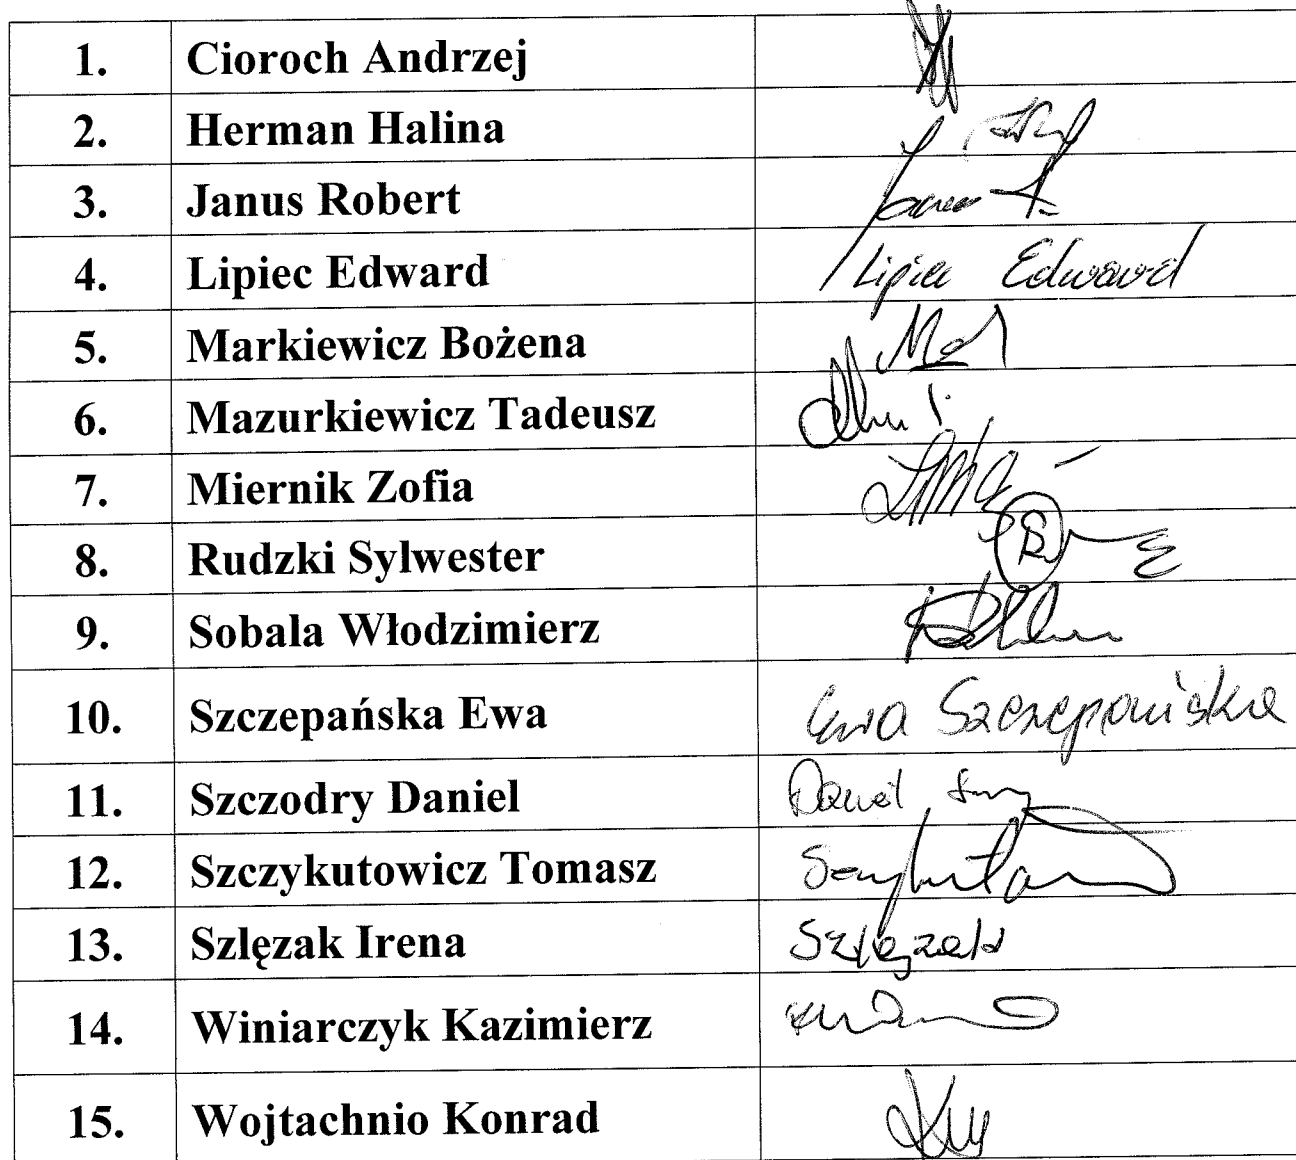 1. Cioroch Andrzej
2. Herman Halina
3. Janus Robert
4. Lipiec Edward Lipiec Edward
5. Markiewicz Bożena
6. Mazurkiewicz Tadeusz
7. Miernik Zofia
8. Rudzki Sylwester
9. Sobala Włodzimierz
10. Szczepańska Ewa Ewa Szczepańska
11. Szczodry Daniel Daniel
12. Szczykutowicz Tomasz
13. Szlęzak Irena Szlęzak
14. Winiarczyk Kazimierz
15. Wojtachnio Konrad